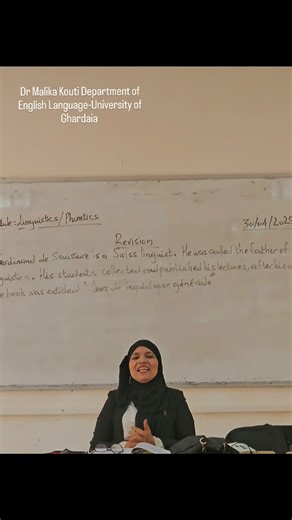 Dr Malika Kouti Department of
English Language-University of
Ghardaia
dule: Linguistics/Phonetics
30/04/2025
Revision
erdinand de Saussure is a Swiss linguist. He was called the father of
guistics. His students collected and published his lectures, after his
e book was entitled "Cours de linguistique générale"